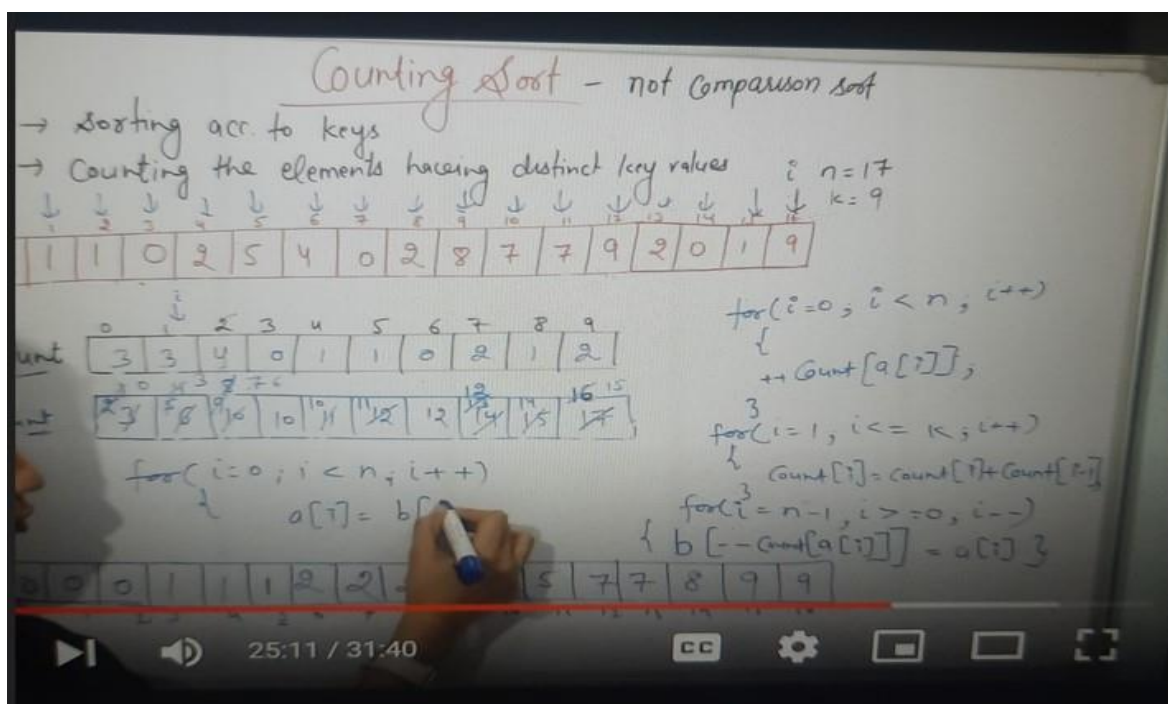 Counting Sort - not Comparison sort
→ Sorting acc. to keys
→ Counting the elements haveing distinct key values
i n=17
k=9
1 2 3 4 5 6 7 8 9 10 11 12 13 14 15 16
1 1 0 2 5 4 0 2 8 7 7 9 2 0 1 9
for(i=0; i<n; i++)
{
++Count[a[i]];
}
i
0 1 2 3 4 5 6 7 8 9
unt 3 3 4 0 1 1 0 2 1 2
16 15
10 12
for(i=1, i<=k; i++)
{
Count[i]=Count[i]+Count[i-1]
}
for(i=n-1, i>=0, i--)
{ b[--Count[a[i]]] = a[i] }
for(i=0; i<n; i++)
{
a[i]= b[
0 0 0 1 1 1 2 2 5 7 7 8 9 9
25:11 / 31:40
CC